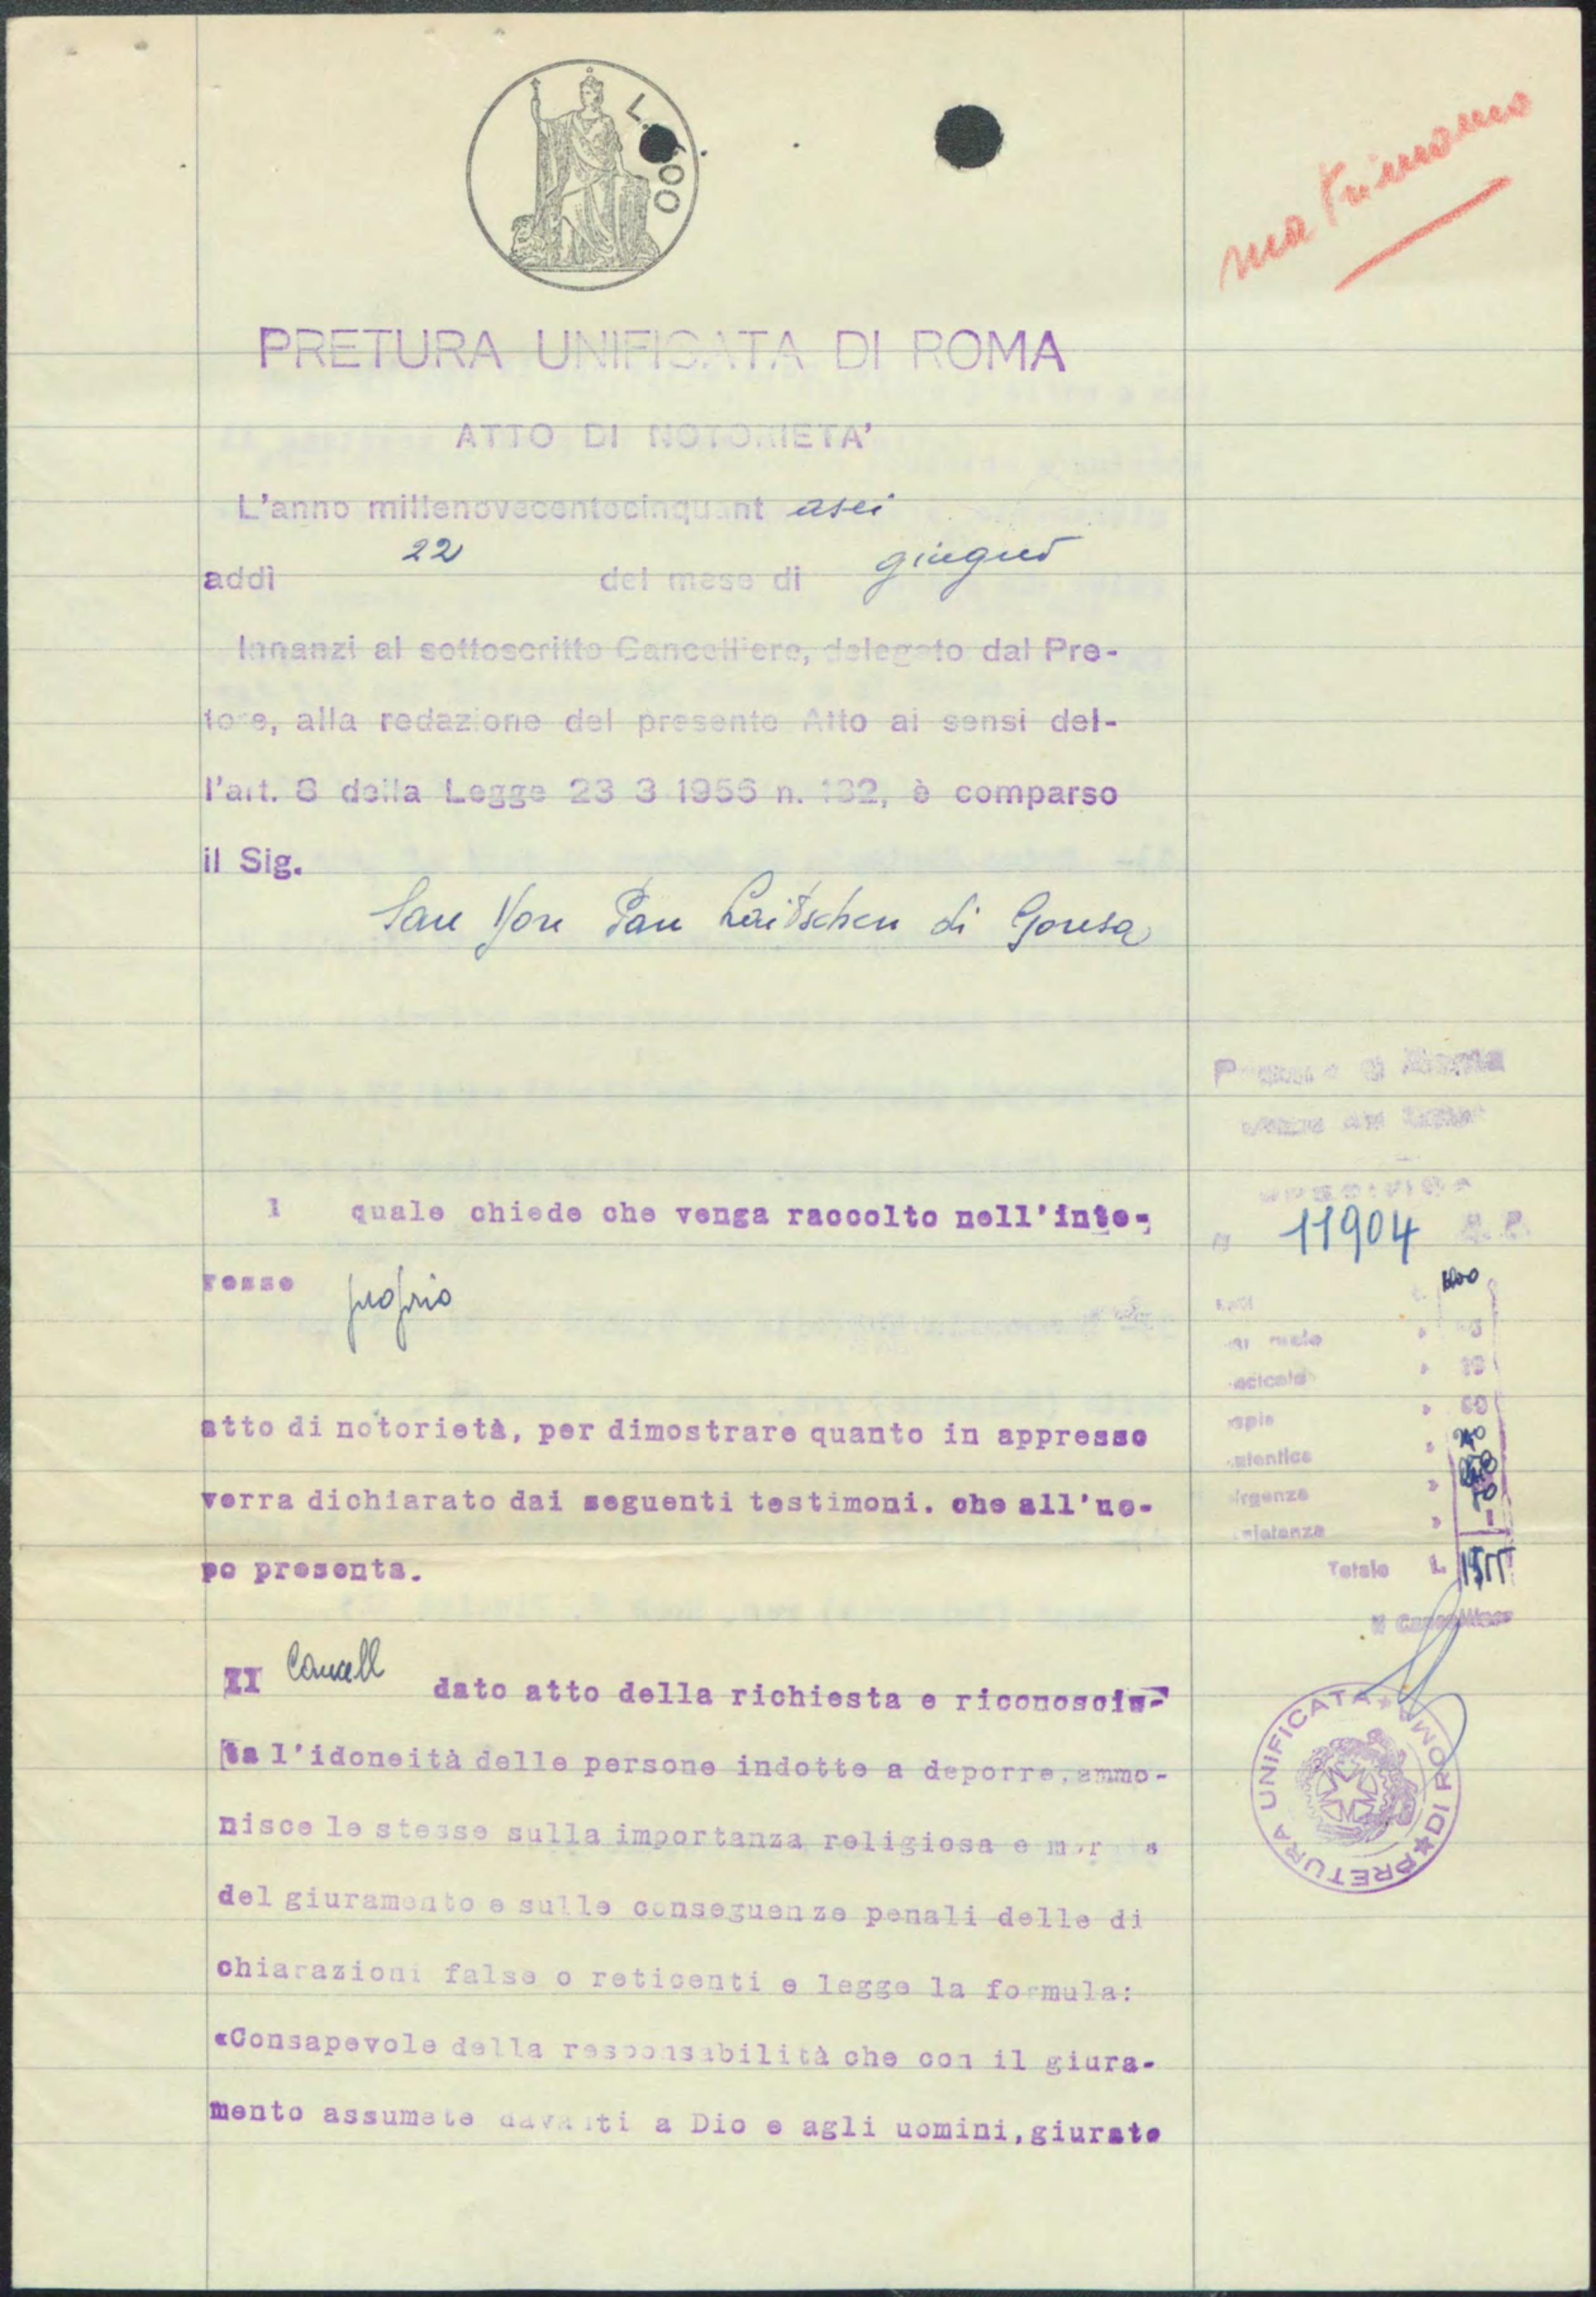 L. 200
matrimonio
PRETURA UNIFICATA DI ROMA
ATTO DI NOTORIETA'
L'anno millenovecentocinquant asei
addì 22 del mese di giugno
Innanzi al sottoscritto Cancelliere, delegato dal Pre-
tore, alla redazione del presente Atto ai sensi del-
l'art. 8 della Legge 23 3 1956 n. 182, è comparso
il Sig.
San Yon Pan Laitschen di Gonsa
l quale chiede che venga raccolto nell'inte-
resse proprio
atto di notorietà, per dimostrare quanto in appresso
verra dichiarato dai seguenti testimoni. che all'uo-
po presenta.
Il Cancell dato atto della richiesta e riconosciu-
ta l'idoneità delle persone indotte a deporre, ammo-
nisce le stesse sulla importanza religiosa e morale
del giuramento e sulle conseguenze penali delle di
chiarazioni false o reticenti e legge la formula:
«Consapevole della responsabilità che con il giura-
mento assumete davanti a Dio e agli uomini, giurate
N 11904
Totale L.
Il Cancelliere
PRETURA UNIFICATA DI ROMA